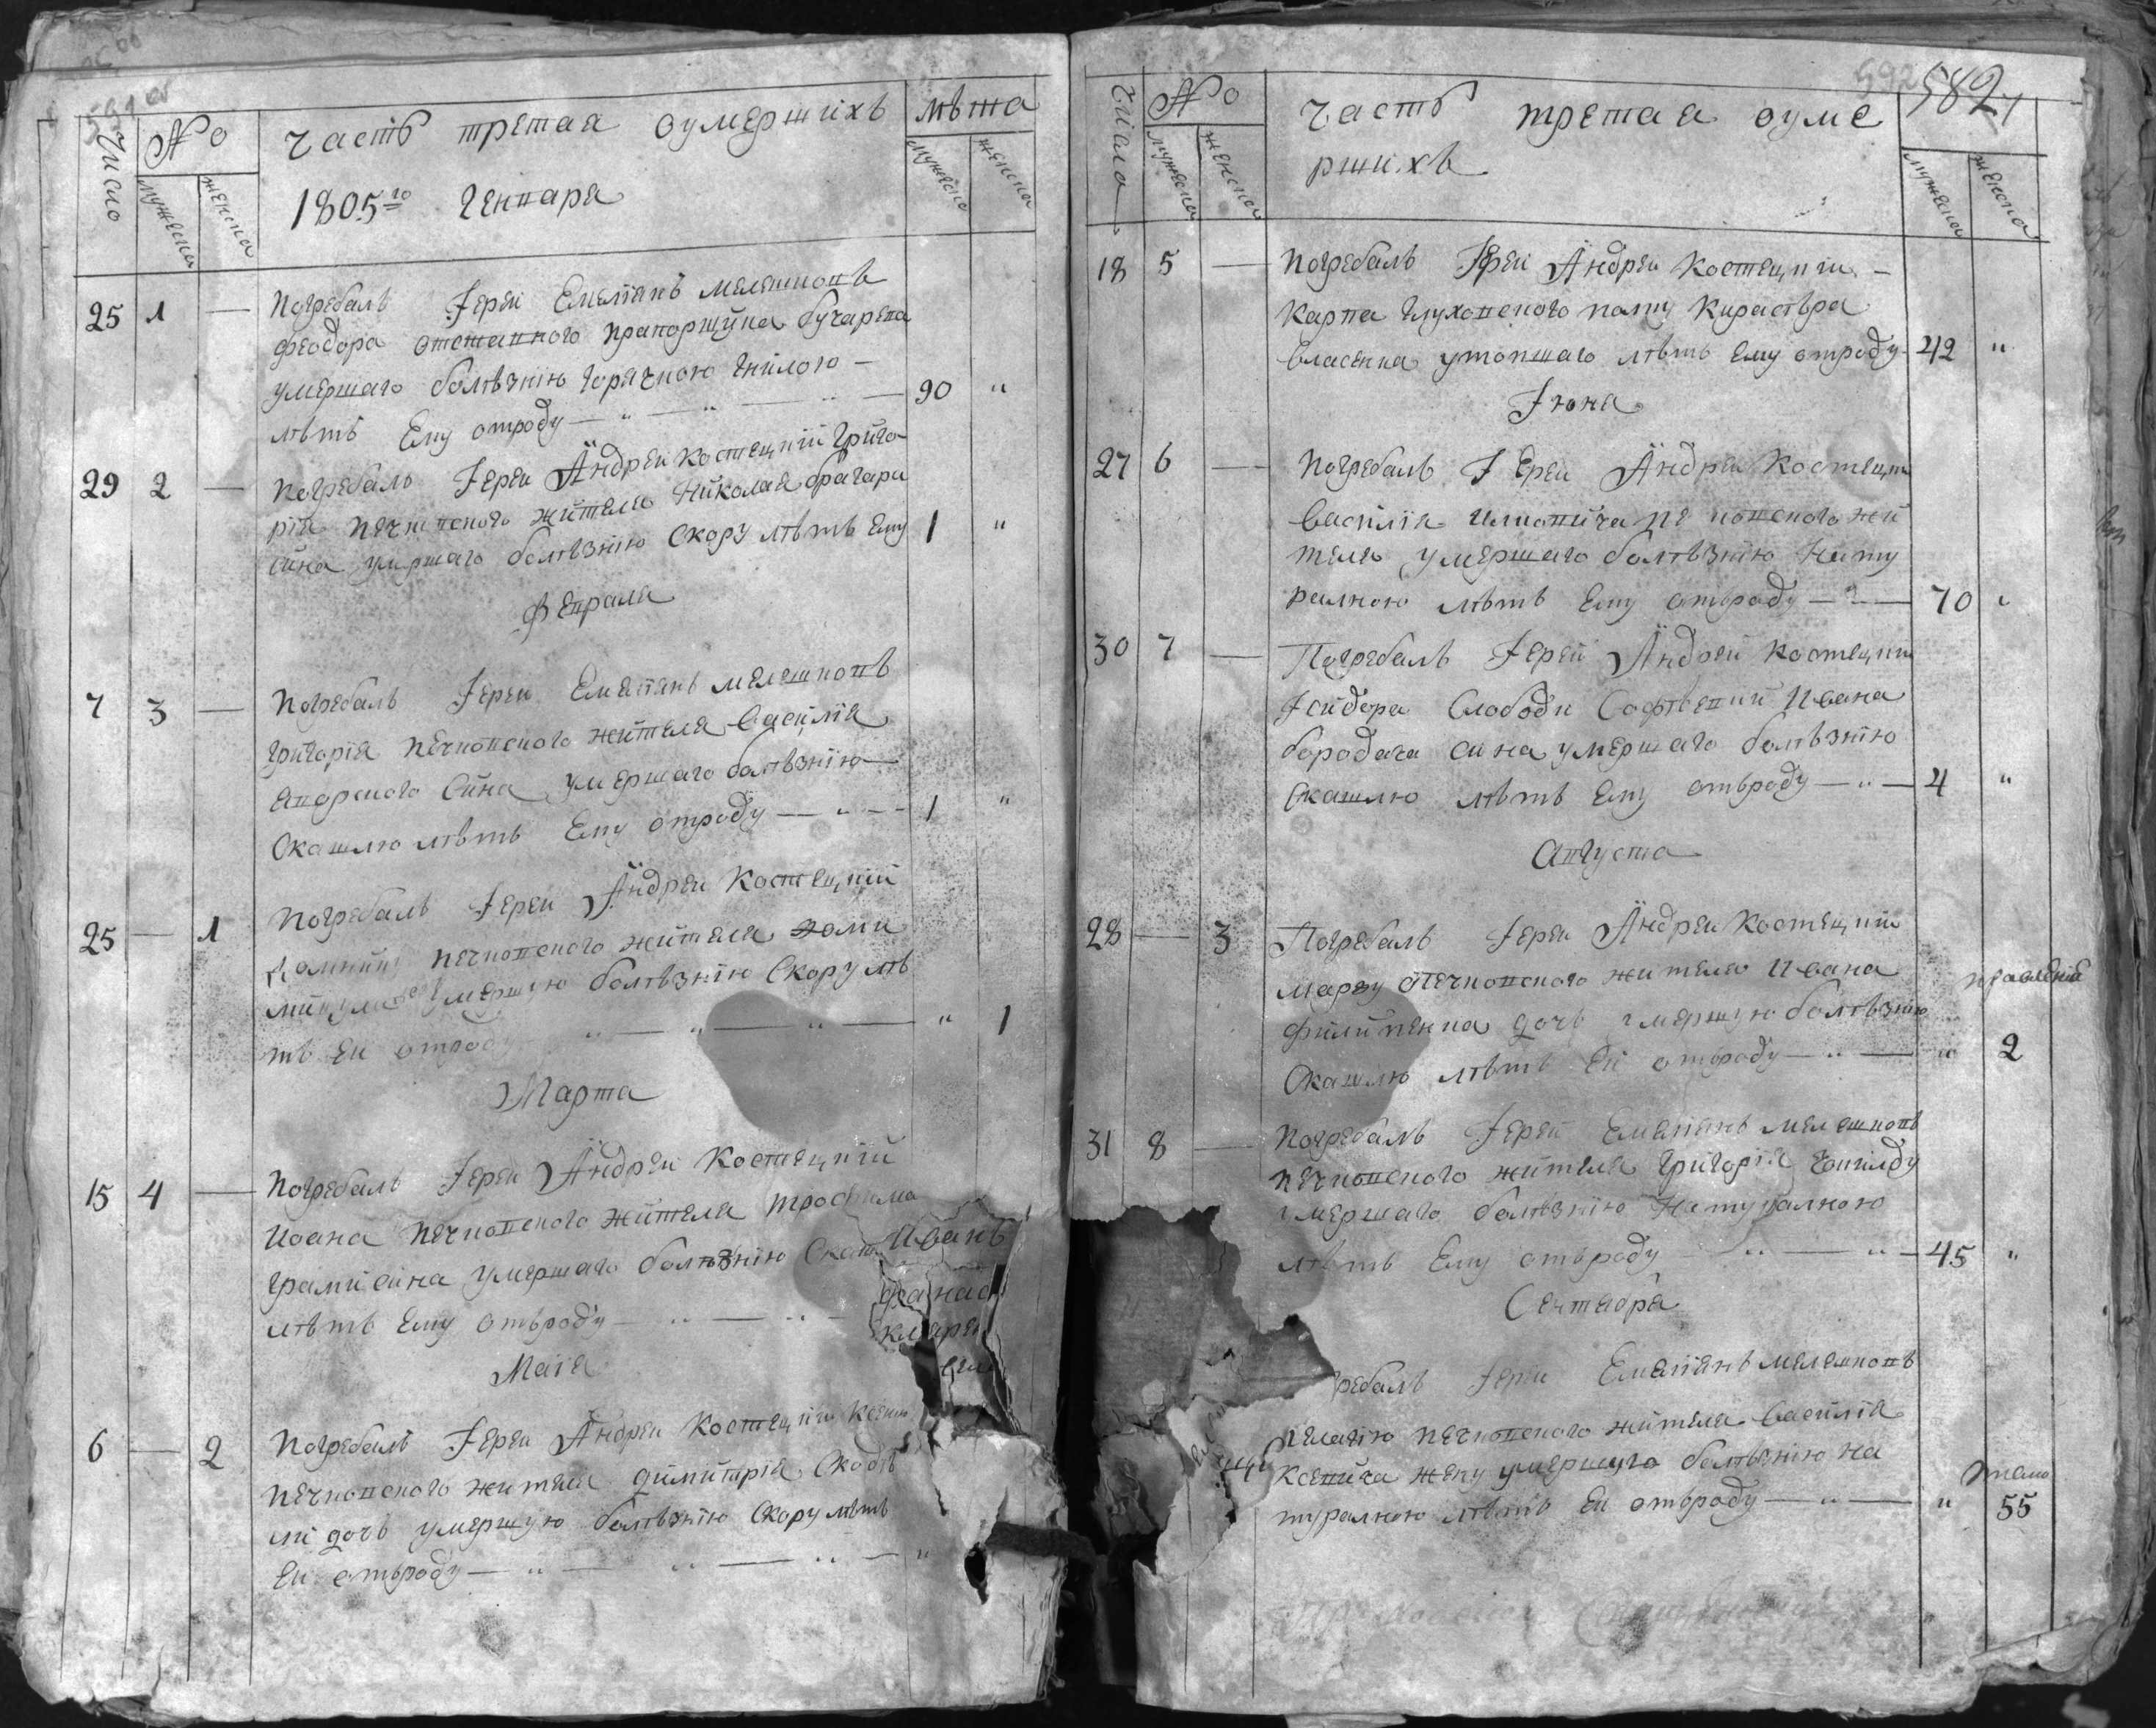 591 об
Число
№
мужеска
женска
часть третая оумершихъ
1805го Генваря
лѣта
мужеска
женска
25 1 — Погребалъ Іереи Емелїанъ мелешковъ
феодора отставного прапорщика бучарева
умершаго болѣзнїю горячкою гнилою —
лѣтъ Ему отроду — 90 "
29 2 — погребалъ Іереи Андреи костецкїи Григо
рїя печковского жителя Николая брагари
сина умршаго болѣзнїю Скору лѣтъ Ему 1 "
февраля
7 3 — погребалъ Іереи Емелїанъ мелешковъ
григорїя печковского жителя василїя
яворского Сина умершаго болѣзнїю —
Окашлю лѣтъ Ему отроду — 1 "
25 — 1 погребалъ Іереи Андреи Костецкїй
Домникїю печковского жителя
умершую болѣзнїю Скору лѣ
тъ Еи отроду — " 1
Марта
15 4 — погребалъ Іереи Андреи Костецкїй
Иоана печковского жителя трофима
грами сина умершаго болѣзнїю Скаш
лѣтъ Ему отъроду —
Иванъ
Маїя
6 — 2 погребалъ Іереи Андреи Костецкїи
печковского жителя димитрїя Скодѣ
лї дочь умершую болѣзнїю Скору лѣтъ
Еи отъроду — "
592
582
Числа
№
мужеска
женска
часть третая оуме
рших.хъ
мужеска
женска
18 5 — Погребалъ Іереи Андреи Костецкїи —
Карпа глуховского полку Кирасѣра
Власенка утопшаго лѣтъ Ему отроду 42 "
Іюня
27 6 — погребалъ Іереи Андреи Костецки
василїя печковского жи
теля умершаго болѣзнїю Нату
ралною лѣтъ Ему отъроду — 70 "
30 7 — Погребалъ Іерей Андреи Костецкїи
Ісидора Слободи Софѣевки Ивана
бородача сина умершаго болѣзнїю
Окашлю лѣтъ Ему отъроду — 4 "
Августа
28 — 3 Погребалъ Іереи Андреи Костецкїи
марѳу печковского жителя Ивана
филипенка дочь умершую болѣзнїю
Окашлю лѣтъ Еи отъроду — " 2
31 8 — погребалъ Іерей Емелїанъ мелешковъ
печковского жителя Григорїя
умершаго болѣзнїю Натуралною
лѣтъ Ему отъроду — 45 "
Сентября
ребалъ Іереи Емелїанъ мелешковъ
пелагїю печковского жителя василїя
жену умершую болѣзнїю на
туралною лѣтъ Еи отъроду — " 55